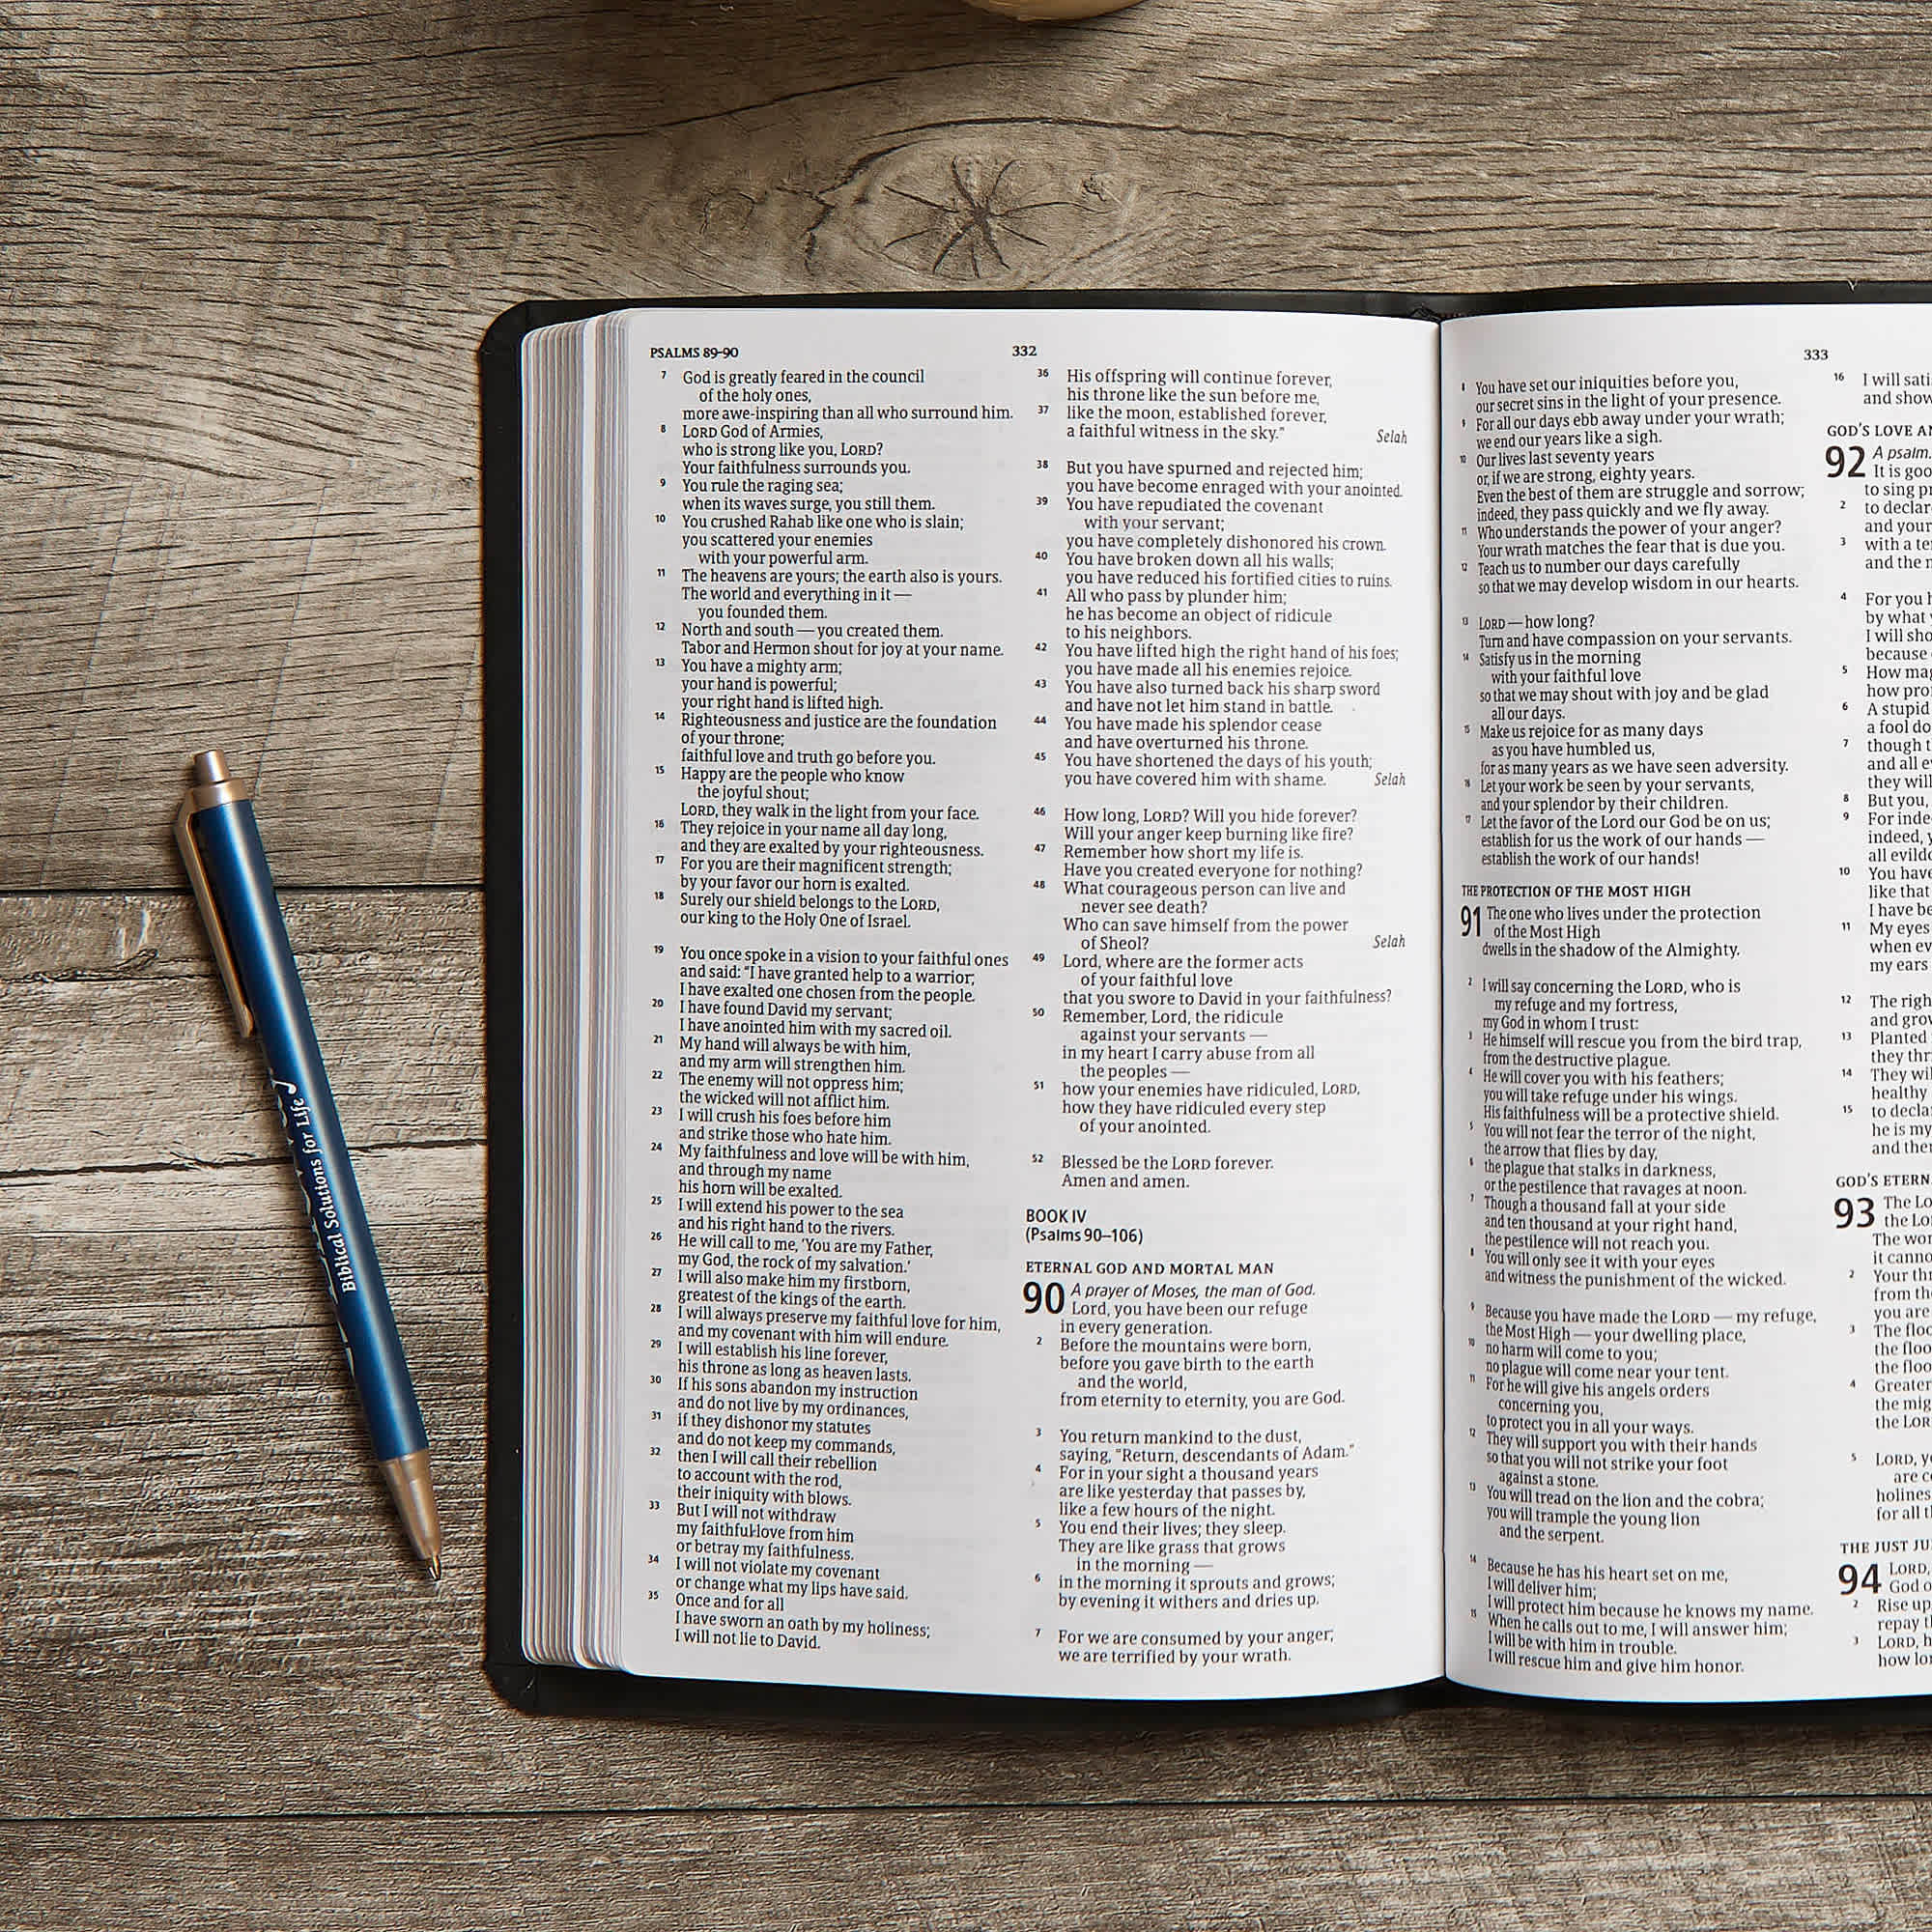 PSALMS 89–90
332
7 God is greatly feared in the council
of the holy ones,
more awe-inspiring than all who surround him.
8 LORD God of Armies,
who is strong like you, LORD?
Your faithfulness surrounds you.
9 You rule the raging sea;
when its waves surge, you still them.
10 You crushed Rahab like one who is slain;
you scattered your enemies
with your powerful arm.
11 The heavens are yours; the earth also is yours.
The world and everything in it —
you founded them.
12 North and south — you created them.
Tabor and Hermon shout for joy at your name.
13 You have a mighty arm;
your hand is powerful;
your right hand is lifted high.
14 Righteousness and justice are the foundation
of your throne;
faithful love and truth go before you.
15 Happy are the people who know
the joyful shout;
LORD, they walk in the light from your face.
16 They rejoice in your name all day long,
and they are exalted by your righteousness.
17 For you are their magnificent strength;
by your favor our horn is exalted.
18 Surely our shield belongs to the LORD,
our king to the Holy One of Israel.
19 You once spoke in a vision to your faithful ones
and said: "I have granted help to a warrior;
I have exalted one chosen from the people.
20 I have found David my servant;
I have anointed him with my sacred oil.
21 My hand will always be with him,
and my arm will strengthen him.
22 The enemy will not oppress him;
the wicked will not afflict him.
23 I will crush his foes before him
and strike those who hate him.
24 My faithfulness and love will be with him,
and through my name
his horn will be exalted.
25 I will extend his power to the sea
and his right hand to the rivers.
26 He will call to me, 'You are my Father,
my God, the rock of my salvation.'
27 I will also make him my firstborn,
greatest of the kings of the earth.
28 I will always preserve my faithful love for him,
and my covenant with him will endure.
29 I will establish his line forever,
his throne as long as heaven lasts.
30 If his sons abandon my instruction
and do not live by my ordinances,
31 if they dishonor my statutes
and do not keep my commands,
32 then I will call their rebellion
to account with the rod,
their iniquity with blows.
33 But I will not withdraw
my faithful love from him
or betray my faithfulness.
34 I will not violate my covenant
or change what my lips have said.
35 Once and for all
I have sworn an oath by my holiness;
I will not lie to David.
36 His offspring will continue forever,
his throne like the sun before me,
37 like the moon, established forever,
a faithful witness in the sky." Selah
38 But you have spurned and rejected him;
you have become enraged with your anointed.
39 You have repudiated the covenant
with your servant;
you have completely dishonored his crown.
40 You have broken down all his walls;
you have reduced his fortified cities to ruins.
41 All who pass by plunder him;
he has become an object of ridicule
to his neighbors.
42 You have lifted high the right hand of his foes;
you have made all his enemies rejoice.
43 You have also turned back his sharp sword
and have not let him stand in battle.
44 You have made his splendor cease
and have overturned his throne.
45 You have shortened the days of his youth;
you have covered him with shame. Selah
46 How long, LORD? Will you hide forever?
Will your anger keep burning like fire?
47 Remember how short my life is.
Have you created everyone for nothing?
48 What courageous person can live and
never see death?
Who can save himself from the power
of Sheol? Selah
49 Lord, where are the former acts
of your faithful love
that you swore to David in your faithfulness?
50 Remember, Lord, the ridicule
against your servants —
in my heart I carry abuse from all
the peoples —
51 how your enemies have ridiculed, LORD,
how they have ridiculed every step
of your anointed.
52 Blessed be the LORD forever.
Amen and amen.
BOOK IV
(Psalms 90–106)
ETERNAL GOD AND MORTAL MAN
90 A prayer of Moses, the man of God.
Lord, you have been our refuge
in every generation.
2 Before the mountains were born,
before you gave birth to the earth
and the world,
from eternity to eternity, you are God.
3 You return mankind to the dust,
saying, "Return, descendants of Adam."
4 For in your sight a thousand years
are like yesterday that passes by,
like a few hours of the night.
5 You end their lives; they sleep.
They are like grass that grows
in the morning —
6 in the morning it sprouts and grows;
by evening it withers and dries up.
7 For we are consumed by your anger;
we are terrified by your wrath.
333
8 You have set our iniquities before you,
our secret sins in the light of your presence.
9 For all our days ebb away under your wrath;
we end our years like a sigh.
10 Our lives last seventy years
or, if we are strong, eighty years.
Even the best of them are struggle and sorrow;
indeed, they pass quickly and we fly away.
11 Who understands the power of your anger?
Your wrath matches the fear that is due you.
12 Teach us to number our days carefully
so that we may develop wisdom in our hearts.
13 LORD — how long?
Turn and have compassion on your servants.
14 Satisfy us in the morning
with your faithful love
so that we may shout with joy and be glad
all our days.
15 Make us rejoice for as many days
as you have humbled us,
for as many years as we have seen adversity.
16 Let your work be seen by your servants,
and your splendor by their children.
17 Let the favor of the Lord our God be on us;
establish for us the work of our hands —
establish the work of our hands!
THE PROTECTION OF THE MOST HIGH
91 The one who lives under the protection
of the Most High
dwells in the shadow of the Almighty.
2 I will say concerning the LORD, who is
my refuge and my fortress,
my God in whom I trust:
3 He himself will rescue you from the bird trap,
from the destructive plague.
4 He will cover you with his feathers;
you will take refuge under his wings.
His faithfulness will be a protective shield.
5 You will not fear the terror of the night,
the arrow that flies by day,
6 the plague that stalks in darkness,
or the pestilence that ravages at noon.
7 Though a thousand fall at your side
and ten thousand at your right hand,
the pestilence will not reach you.
8 You will only see it with your eyes
and witness the punishment of the wicked.
9 Because you have made the LORD — my refuge,
the Most High — your dwelling place,
10 no harm will come to you;
no plague will come near your tent.
11 For he will give his angels orders
concerning you,
to protect you in all your ways.
12 They will support you with their hands
so that you will not strike your foot
against a stone.
13 You will tread on the lion and the cobra;
you will trample the young lion
and the serpent.
14 Because he has his heart set on me,
I will deliver him;
I will protect him because he knows my name.
15 When he calls out to me, I will answer him;
I will be with him in trouble.
I will rescue him and give him honor.
16 I will sati
and show
GOD'S LOVE AN
92 A psalm.
It is goo
to sing pr
2 to declar
and your
3 with a te
and the
4 For you h
by what
I will sho
because
5 How mag
how pro
6 A stupid
a fool do
7 though t
and all e
they will
8 But you,
9 For inde
indeed, y
all evild
10 You have
like that
I have be
11 My eyes
when ev
my ears
12 The righ
and grow
13 Planted
they thr
14 They wil
healthy
15 to decla
he is my
and ther
GOD'S ETERN
93 The Lo
the Lo
The wor
it canno
2 Your thr
from the
you are
3 The floo
the floo
the floo
4 Greater
the mig
the LOR
5 LORD, yo
are c
holines
for all t
THE JUST JU
94 LORD,
God o
2 Rise up,
repay t
3 LORD, h
how lon
Biblical Solutions for Life